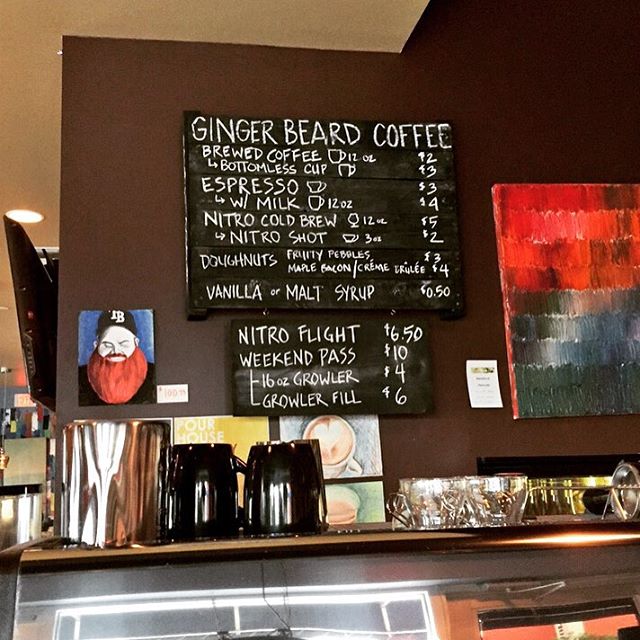 GINGER BEARD COFFEE
BREWED COFFEE 12 oz $2
↳ BOTTOMLESS CUP $3
ESPRESSO $3
↳ W/ MILK 12 oz $4
NITRO COLD BREW 12 oz $5
↳ NITRO SHOT 3 oz $2
DOUGHNUTS FRUITY PEBBLES $3
MAPLE BACON/CRÈME BRÛLÉE $4
VANILLA or MALT SYRUP $0.50
NITRO FLIGHT $6.50
WEEKEND PASS $10
16 oz GROWLER $4
GROWLER FILL $6
POUR
HOUSE